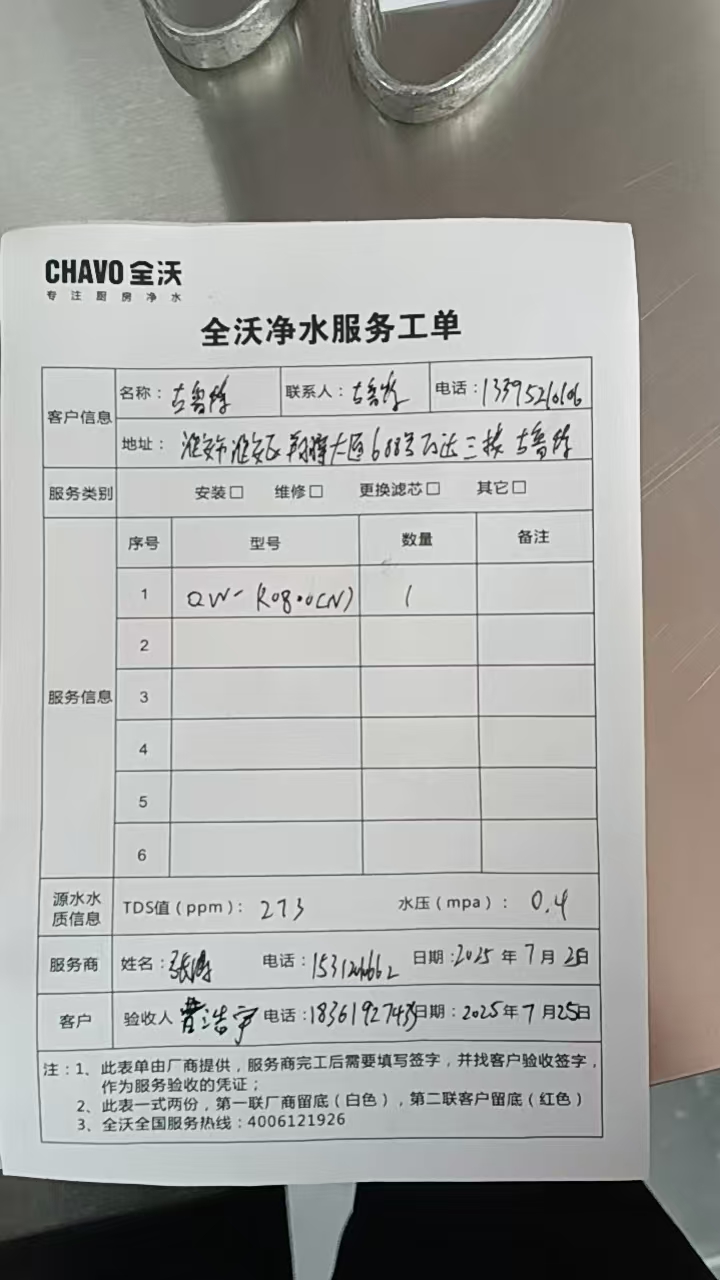 CHAVO 全沃
专注厨房净水
全沃净水服务工单
客户信息 名称：古鲁特 联系人：古鲁特 电话：
地址：淮安市淮安区翔宇大道688号万达三楼 古鲁特
服务类别 安装□ 维修□ 更换滤芯□ 其它□
服务信息 序号 型号 数量 备注
1 QW-R08.0(N) 1
2
3
4
5
6
源水水质信息 TDS值（ppm）：273 水压（mpa）：0.4
服务商 姓名：张 电话： 日期：2025年7月25日
客户 验收人 曹浩宇 电话： 日期：2025年7月25日
注：1、此表单由厂商提供，服务商完工后需要填写签字，并找客户验收签字，
作为服务验收的凭证；
2、此表一式两份，第一联厂商留底（白色），第二联客户留底（红色）
3、全沃全国服务热线：4006121926